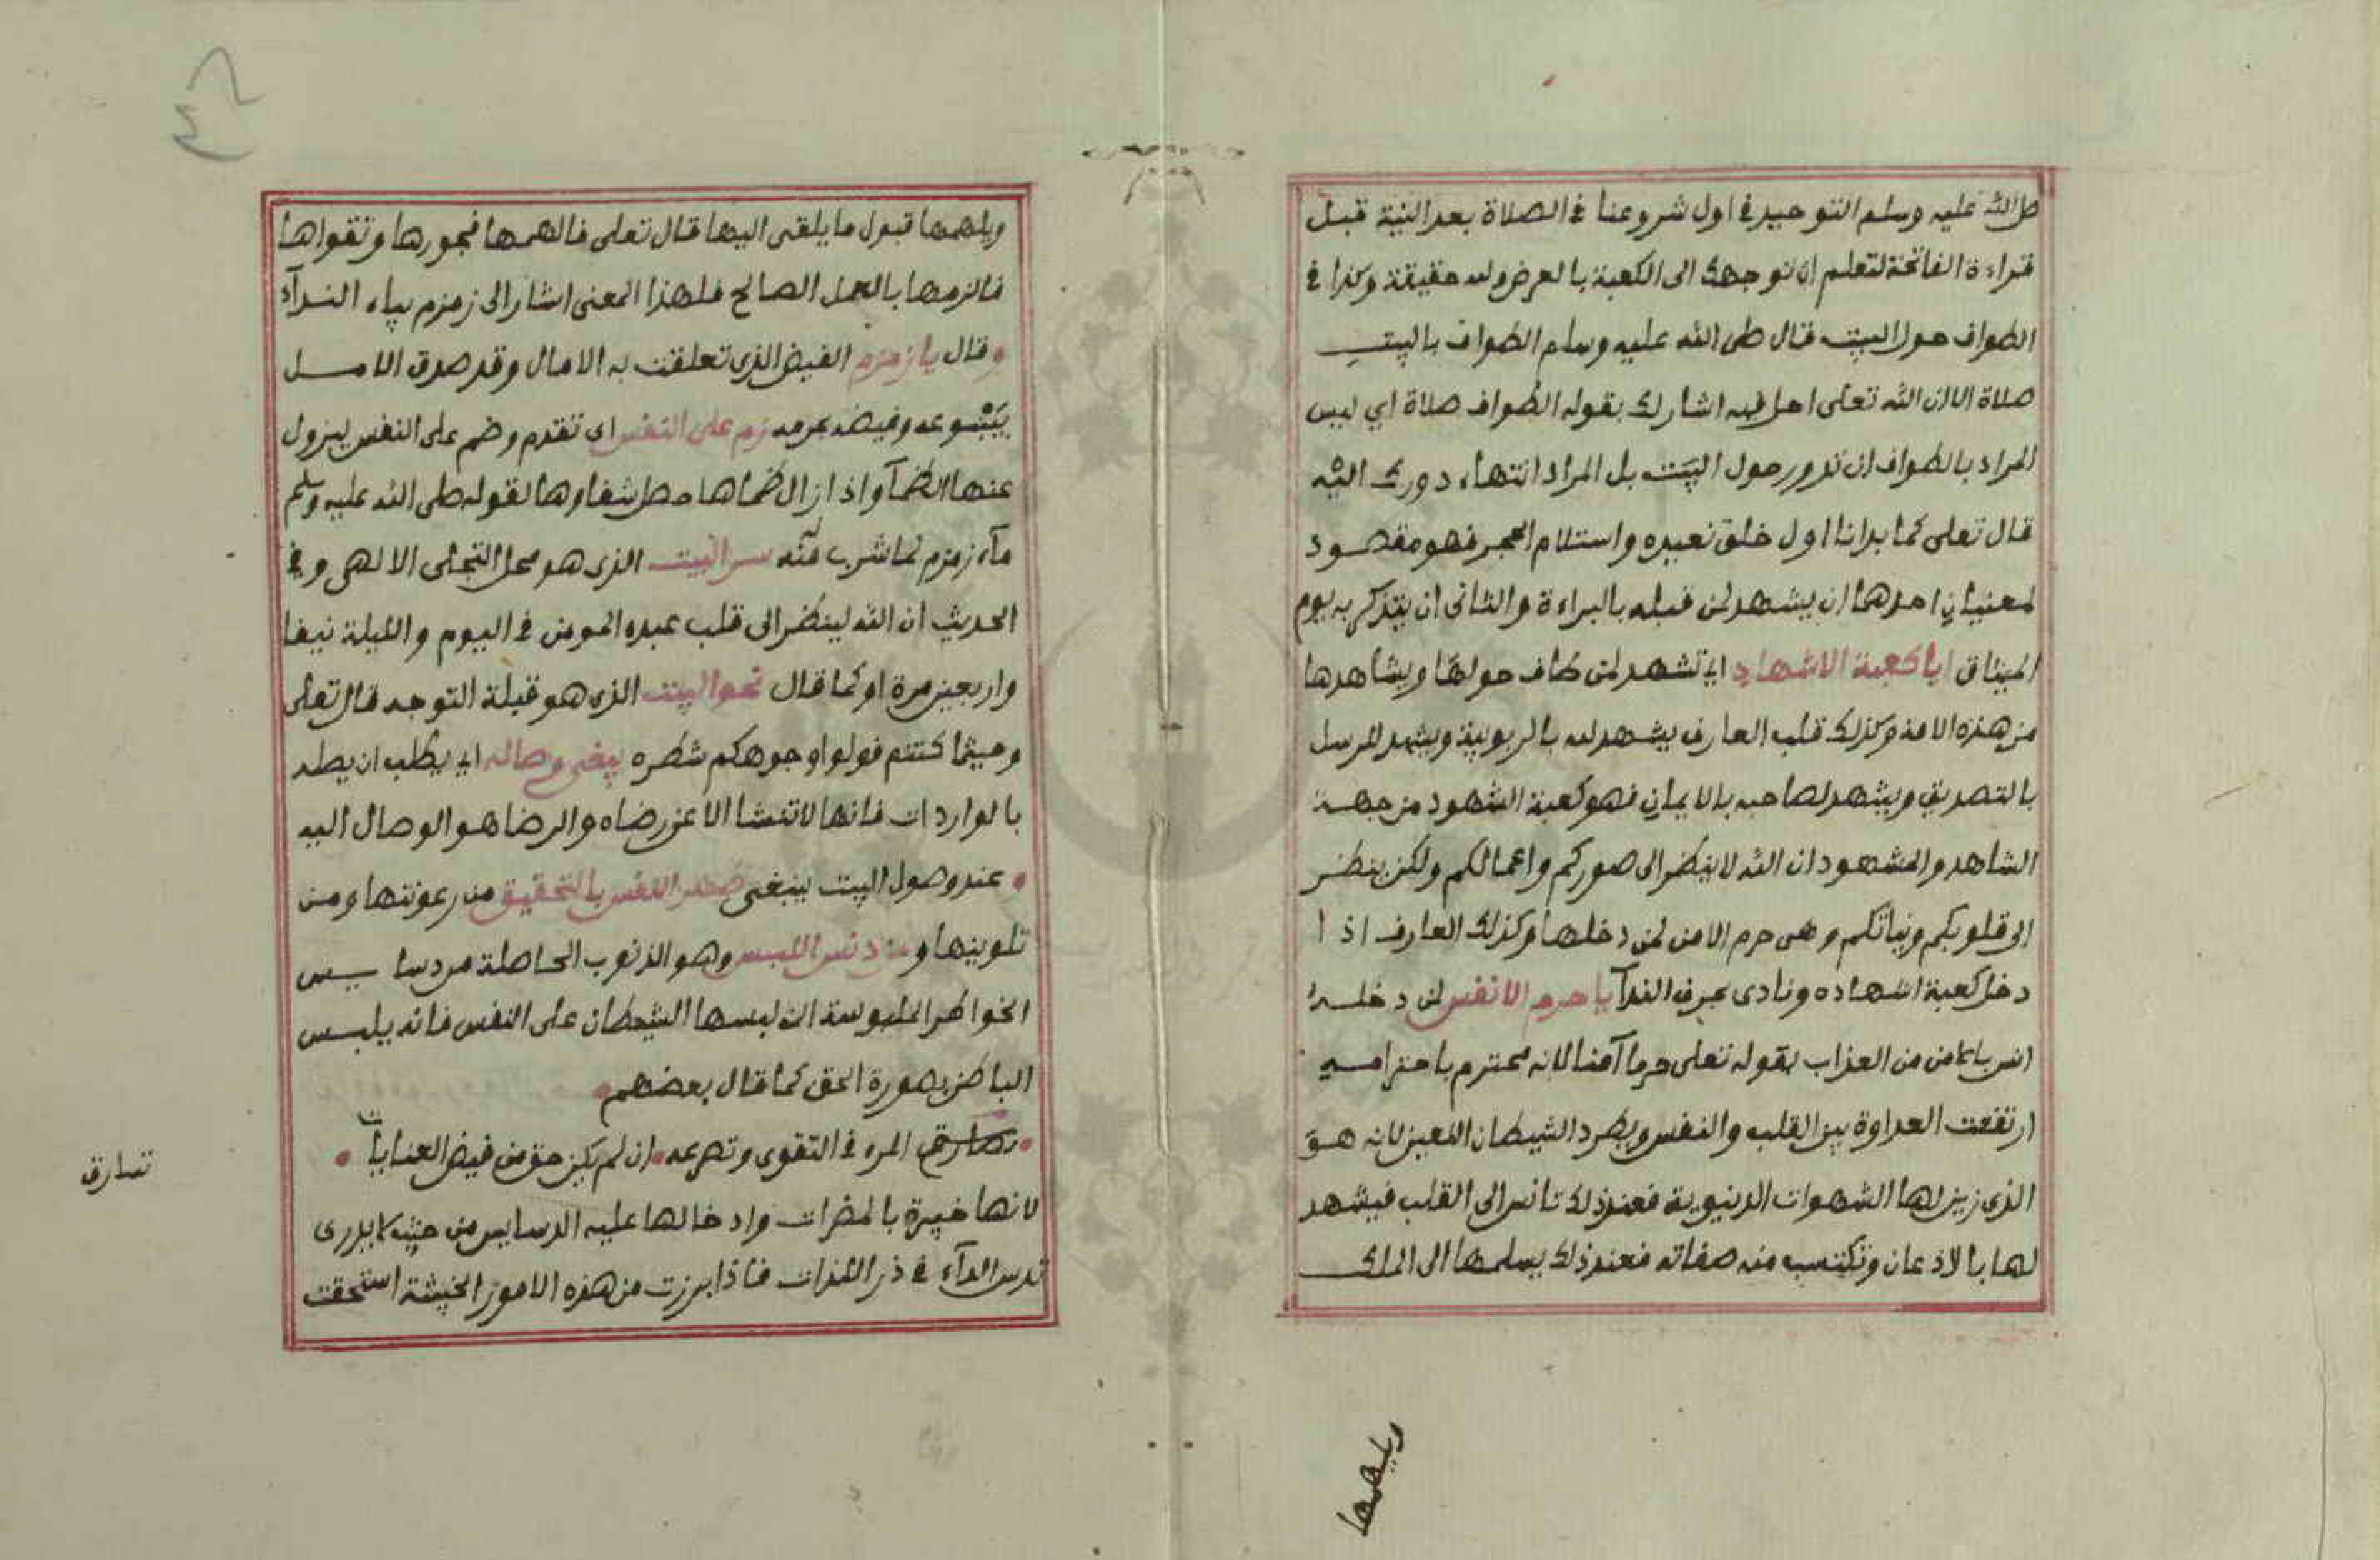 صلى الله عليه وسلم التوحيد في اول شروعنا في الصلاة بعد النية قبل
قراءة الفاتحة لتعلم ان توجهك الى الكعبة بالعرض وله حقيقة وكذا في
الطواف حول البيت قال صلى الله عليه وسلم الطواف بالبيت
صلاة الا ان الله تعلى احل فيه اشار لك بقوله الطواف صلاة اي ليس
المراد بالطواف ان تدور حول البيت بل المراد انتهاء دورك اليه
قال تعلى كما بدانا اول خلق نعيده واستلام الحجر فهو مقصود
لمعنيان احدهما ان يشهد لمن قبله بالبراءة والثانى ان يتذكر به يوم
الميثاق ايا كعبة الاشهاد اي تشهد لمن طاف حولها ويشاهدها
من هذه الامة وكذلك قلب العارف يشهد لله بالربوبية ويشهد للرسل
بالتصديق ويشهد لصاحبه بالايمان فهو كعبة الشهود من جهة
الشاهد والمشهود ان الله لا ينظر الى صوركم واعمالكم ولكن ينظر
الى قلوبكم ونياتكم وهى حرم الامن لمن دخلها وكذلك العارف اذا
دخل كعبة اشهاده ونادى بحرف الندآ يا حرم الانفس لمن دخله
انس بالامن من العذاب بقوله تعلى حرما آمنا لانه محترم باحترامه
ارتفعت العداوة بين القلب والنفس ويطرد الشيطان اللعين لانه هو
الذى زين لها الشهوات الدنيوية فعند ذلك تانس الى القلب فيشهد
لها بالاذعان وتكتسب منه صفاته فعند ذلك يسلمها الى الملك
ويلهمها
ويلهمها قبول ما يلقى اليها قال تعلى فالهمها فجورها وتقواها
فالزمها بالعمل الصالح فلهذا المعنى اشار الى زمزم بياء الندآء
وقال يا زمزم الفيض الذى تعلقت به الامال وقد صدق الامل
بينبوعه وفيضه زم على النفس اى تقدم وضم على النفس ليزول
عنها الظمآ واذا زال ظماها حصل شفاوها لقوله صلى الله عليه وسلم
مآء زمزم لما شرب منه سر البيت الذى هو محل التجلى الالهى وفي
الحديث ان الله لينظر الى قلب عبده المومن في اليوم والليلة نيفا
واربعين مرة او كما قال نحو البيت الذى هو قبلة التوجه قال تعلى
وحيثما كنتم فولوا وجوهكم شطره يبغى وصاله اي يطلب ان يصله
بالواردات فانها لا تنشا الا عن رضاه والرضا هو الوصال اليه
عند وصول البيت ينبغى النفس بالتحقيق من رعونتها ومن
تلوينها و من دنس اللبس وهو الذنوب الحاصلة من دسايس
الخواطر الملبوسة التى لبسها الشيطان على النفس فانه يلبس
الباطن بصورة الحق كما قال بعضهم
المرء في التقوى وتصرعه ان لم يكن حق من فيض العنايات
لانها خبيرة بالمضرات وادخالها عليه الدسايس من حيث لا يدرى
تدس الدآء في ذر اللذات فاذا برزت من هذه الامور الخبيثة استحقت
تسارق